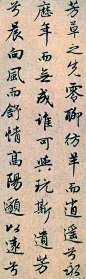 芳草之先零聊彷羊而逍遥兮永
歷年而無成誰可與玩斯遺芳
兮晨向風而舒情高陽邈以遠兮